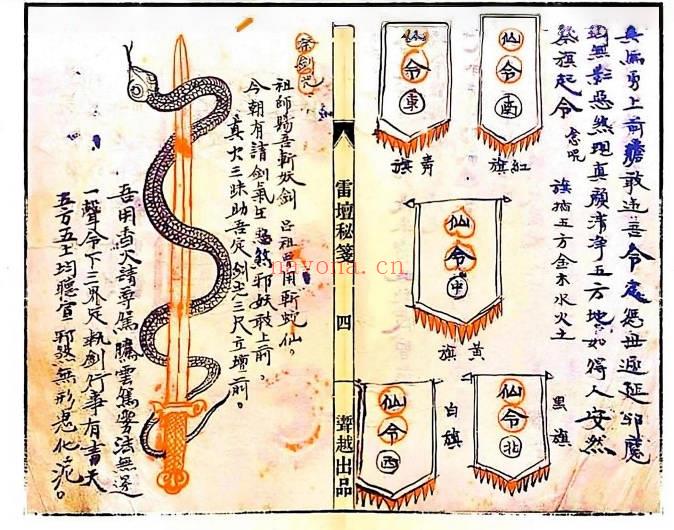 馬勇上前膽敢违吾令處毋遲延邪魔
無影惡煞现真颜清净五方地如得人安然
祭旗起令 念呪 旗指五方金木水火土
仙
令
南
紅旗
仙
令
東
青旗
仙
令
中
黄旗
仙
令
北
黑旗
仙
令
西
白旗
雷壇秘笺
四
越出品
祭剑咒
祖師賜吾斬妖劍 吕祖用斬蛇仙。
今朝有請劍氣至 惡煞邪妖敢上前。
真火三昧助吾灵 剑光三尺立壇前。
吾用香火請尊駕 騰雲駕雾法無邊
一聲令下三界定 執剑行事有青天
五方五土均聽宣 邪煞無形鬼化泥。
nayona.cn